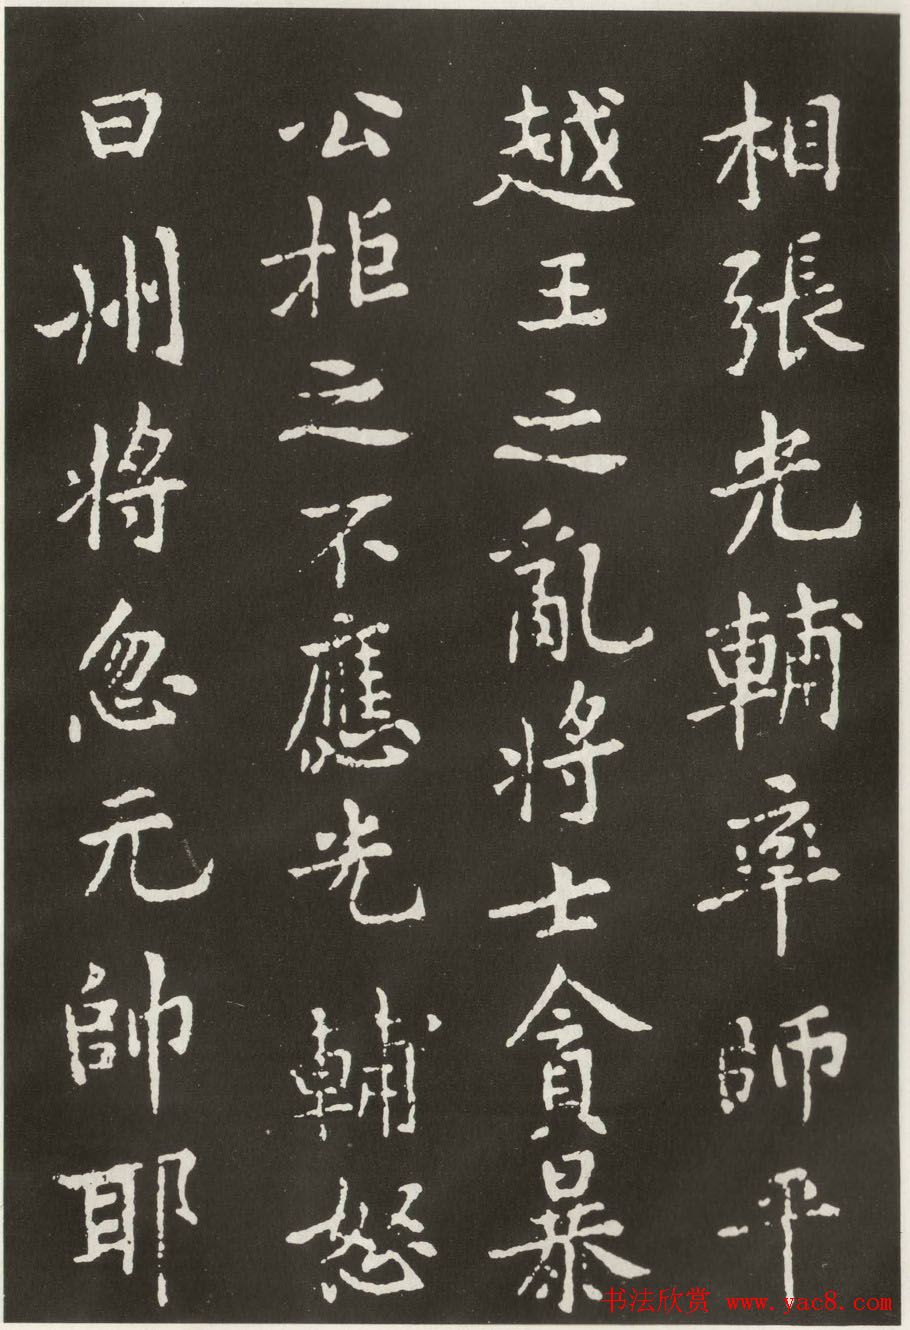 相張光輔率師平
越王之亂將士貪暴
公拒之不應光輔怒
曰州將忽元帥耶
书法欣赏 www.yac8.com